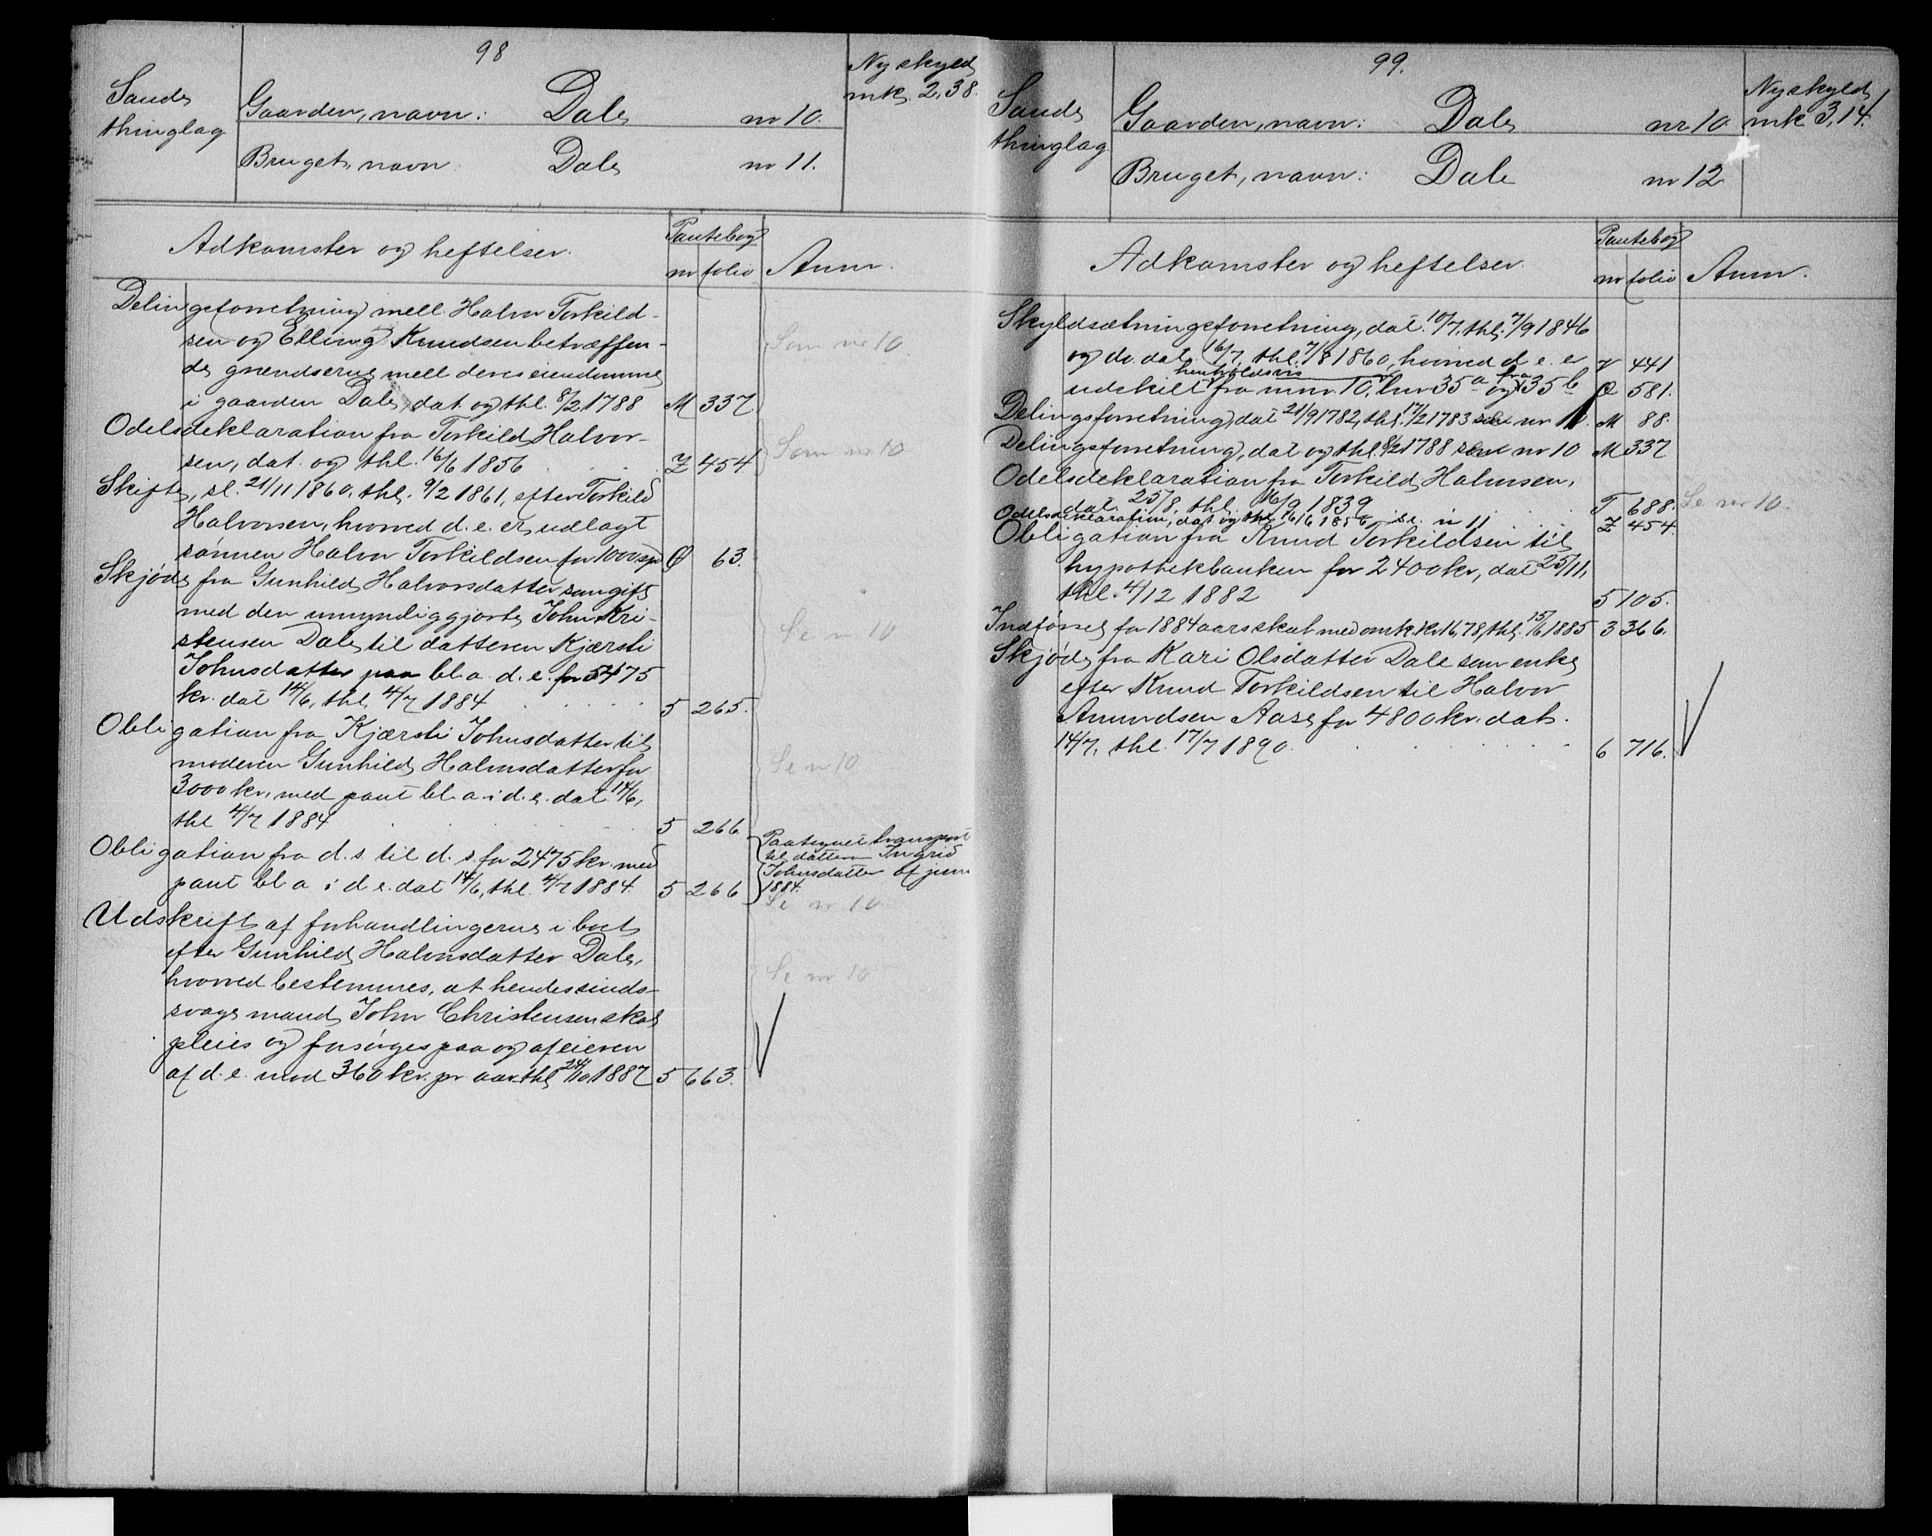 98
Sande
thinglag
Gaarden, navn: Dale nr 10.
Bruget, navn Dale nr 11.
Nyskyld
mk. 2,38.
Adkomster og heftelser.
Pantebog
nr folio
Anm.
Delingsforretning mell. Halvor Torkild-
sen og Elling Knudsen betræffen-
de grændserne mell deres eiendomme
i gaarden Dale, dat. og thl. 8/2 1788 M 337
Som nr 10
Odelsdeklaration fra Torkild Halvor-
sen, dat. og thl. 16/6 1856 Z 454
Som nr 10
Skifte, sl. 21/11 1860, thl. 9/2 1861, efter Torkild
Halvorsen, hvorved d. e. er udlagt
sønnen Halvor Torkildsen for 1000 spd Ø 63.
Skjøde fra Gunhild Halvorsdatter som gift
med den umyndiggjorte John Kri-
stensen Dale til datteren Kjærsti
Johnsdatter paa bl. a. d. e. for 5475
kr. dat 14/6, thl. 4/7 1884 5 265.
Se nr 10
Obligation fra Kjærsti Johnsdatter til
moderen Gunhild Halvorsdatter for
3000 kr., med pant bl. a i d. e. dat 14/6,
thl 4/7 1884 5 266
Se nr 10
Obligation fra d. s. til d. s. for 2475 kr. med
pant bl. a i d e. dat 14/6, thl. 4/7 1884. 5 266
Paategnet transport
til datteren Ingrid
Johnsdatter af juni
1884.
Se nr 10
Udskrift af forhandlingerne i boet
efter Gunhild Halvorsdatter Dale,
hvorved bestemmes, at hendes sinds-
svage mand John Christensen skal
pleies og forsørges paa og af eieren
af d. e. mod 360 kr. pr aar. thl 24/10 1887 5 663.
Se nr 10
99.
Sande
thinglag
Gaarden, navn: Dale nr 10.
Bruget, navn: Dale nr 12
Nyskyld
mk 3,14.
Adkomster og heftelser.
Pantebog
nr folio
Anm.
Skyldsætningsforretning, dat. 10/7, thl. 7/9 1846
og do dat. 16/7, thl. 7/8 1860, hvorved d. e. er V 441
henholdsvis fra
udskilt fra mnr. 10, lnr 35a og 35b Ø 581.
Delingsforretning, dat 21/9 1782, thl. 17/2 1783 se nr 11. M 88.
Delingsforretning, dat og thl. 8/2 1788 se nr 10 M 337
Odelsdeklaration fra Torkild Halvorsen,
dat. 25/8, thl. 16/9 1839 T 688.
Se nr 10.
Odelsdeklaration, dat og thl 16/6 1856, se nr 11 Z 454.
Obligation fra Knud Torkildsen til
hypothekbanken for 2400 kr, dat 25/11,
thl. 4/12 1882 5 105.
Indførsel for 1884 aars skat med omk. kr. 16,78, thl. 15/6 1885 3 366.
Skjøde fra Kari Olsdatter Dale som enke
efter Knud Torkildsen til Halvor
Amundsen Aase for 4800 kr. dat.
14/7, thl. 17/7 1890. 6 716.